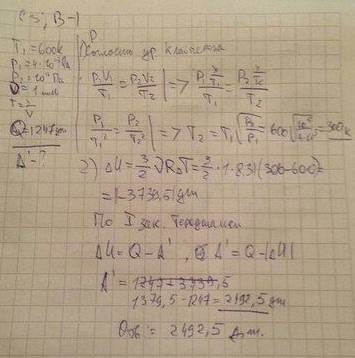 С5, В-1
T₁=600K
P₁=4·10⁵Па
P₂=10⁵Па
ν=1 моль
T=2/V
Q=1247 Дж
A'-?
Согласно ур Клапейрона
P₁V₁/T₁ = P₂V₂/T₂ => P₁ /T₁ = P₂ /T₂
P₁/T₁² = P₂/T₂² => T₂=T₁√P₂/P₁ = 600 =300K
2) ΔU=3/2 νRΔT=3/2·1·831(300-600)=
=|-3739,5| Дж
По I зак. Термодинам
ΔU=Q-A', A'=Q-|ΔU|
A'=1247+3739,5
1379,5-1247=2492,5 Дж
Отв = 2492,5 Дж.